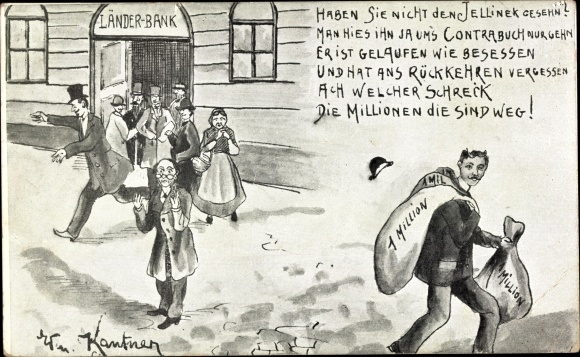 LÄNDER-BANK
HABEN SIE NICHT DEN JELLINEK GESEHN!
MAN HIES IHN JA UM'S CONTRABUCH NUR GEHN
ER IST GELAUFEN WIE BESESSEN
UND HAT ANS RÜCKKEHREN VERGESSEN
ACH WELCHER SCHRECK
DIE MILLIONEN DIE SIND WEG!
1 MIL
1 MILLION
1 MILLION
Kantner